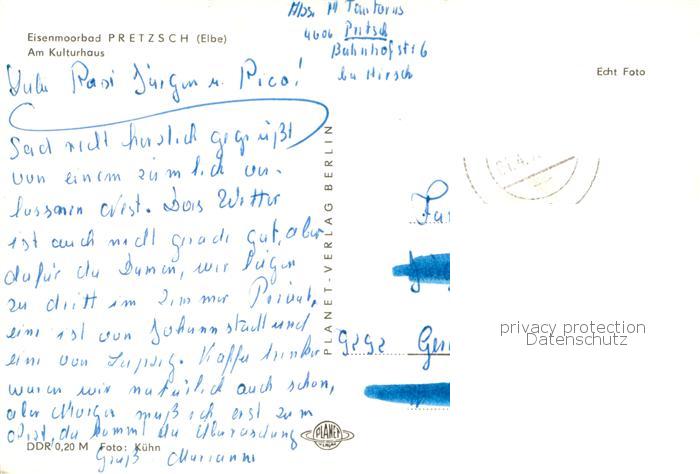 Eisenmoorbad PRETZSCH (Elbe)
Am Kulturhaus
Abs. M
4606 Pretsch
Bahnhofst 6
bei Hirsch
Echt Foto
Jürgen u. Pico!
Seid recht herzlich gegrüßt
von einem ziemlich ver-
lassenen Nest. Das Wetter
ist auch nicht gerade gut, aber
dafür die Damen, wir liegen
zu dritt im Zimmer Privat,
eine ist von Johannstadt und
eine von Leipzig. Kaffee trinken
waren wir natürlich auch schon,
aber Morgen muß ich erst zum
Arzt, da kommt die Überraschung
Gruß Marianne
DDR 0,20 M Foto: Kühn
PLANET-VERLAG BERLIN
PLANET
Fa
9292
privacy protection
Datenschutz